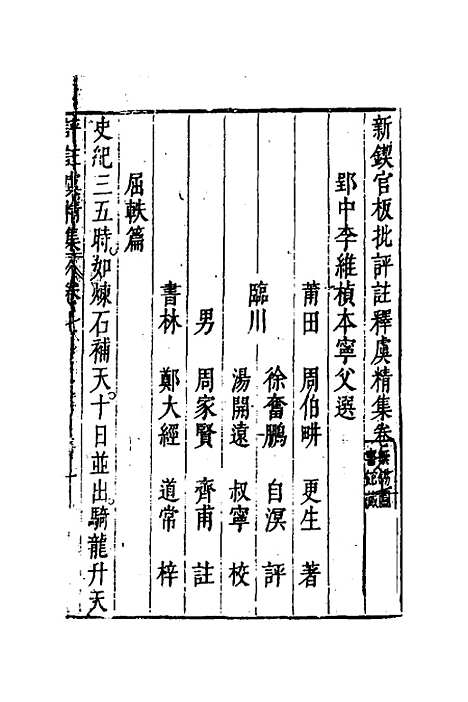 新鍥官板批評註釋虞精集卷
郢中李維楨本寧父選
莆田 周伯畊 更生 著
臨川 徐奮鵬 自溟 評
湯開遠 叔寧 校
男 周家賢 齊甫 註
書林 鄭大經 道常 梓
屈軼篇
史紀三五時如煉石補天十日並出騎龍升天
評註虞精集